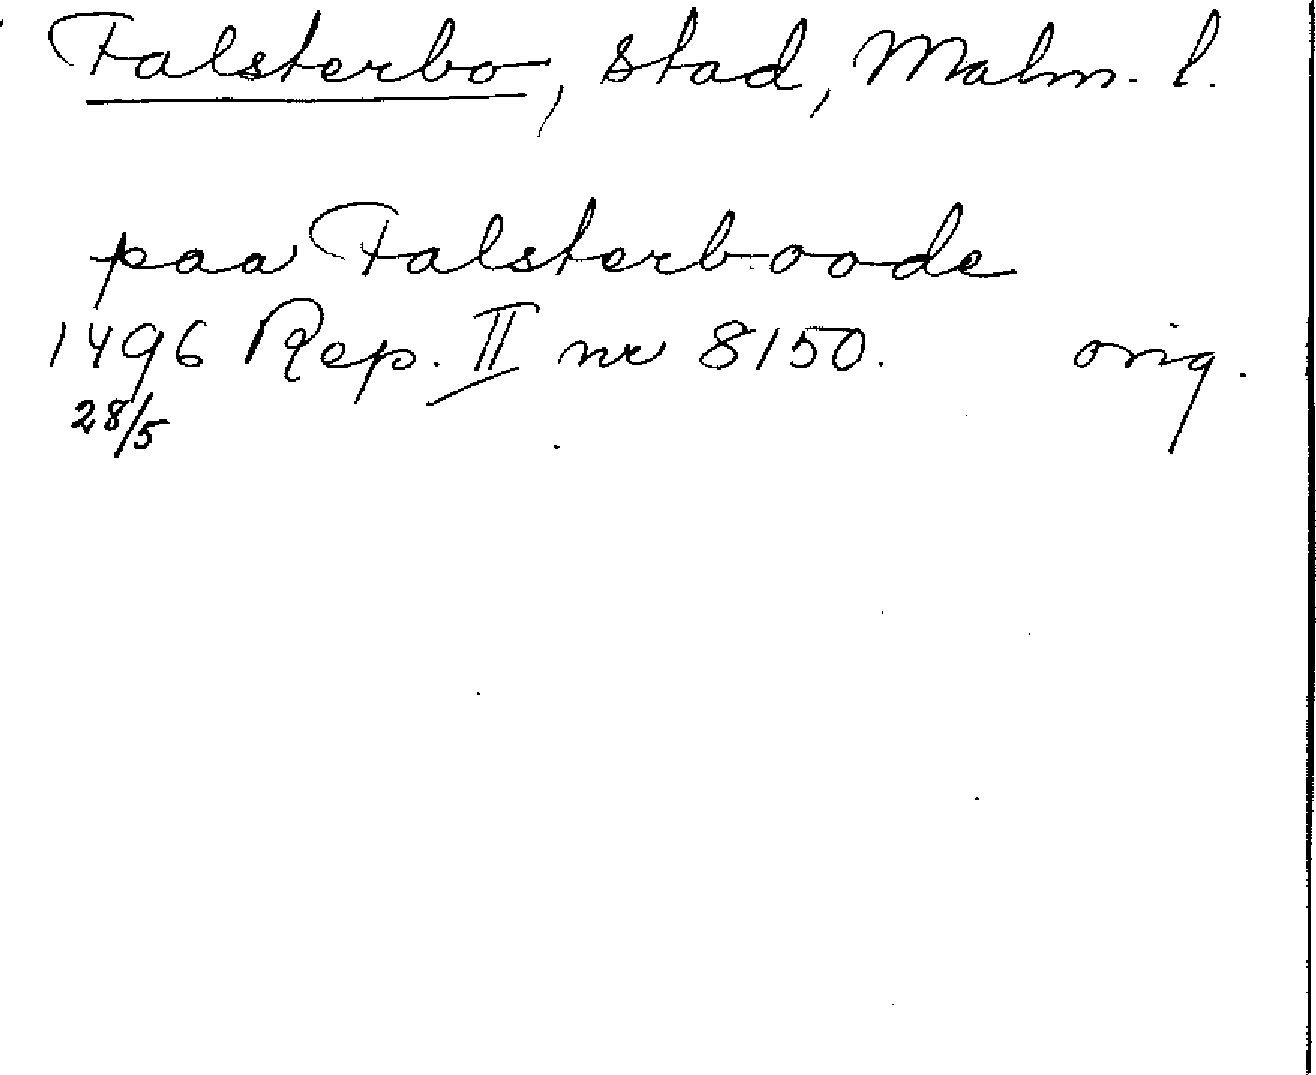 Falsterbo, stad, Malm. l.
paa Falsterboode
1496 Rep. II nr 8150. orig.
28/5